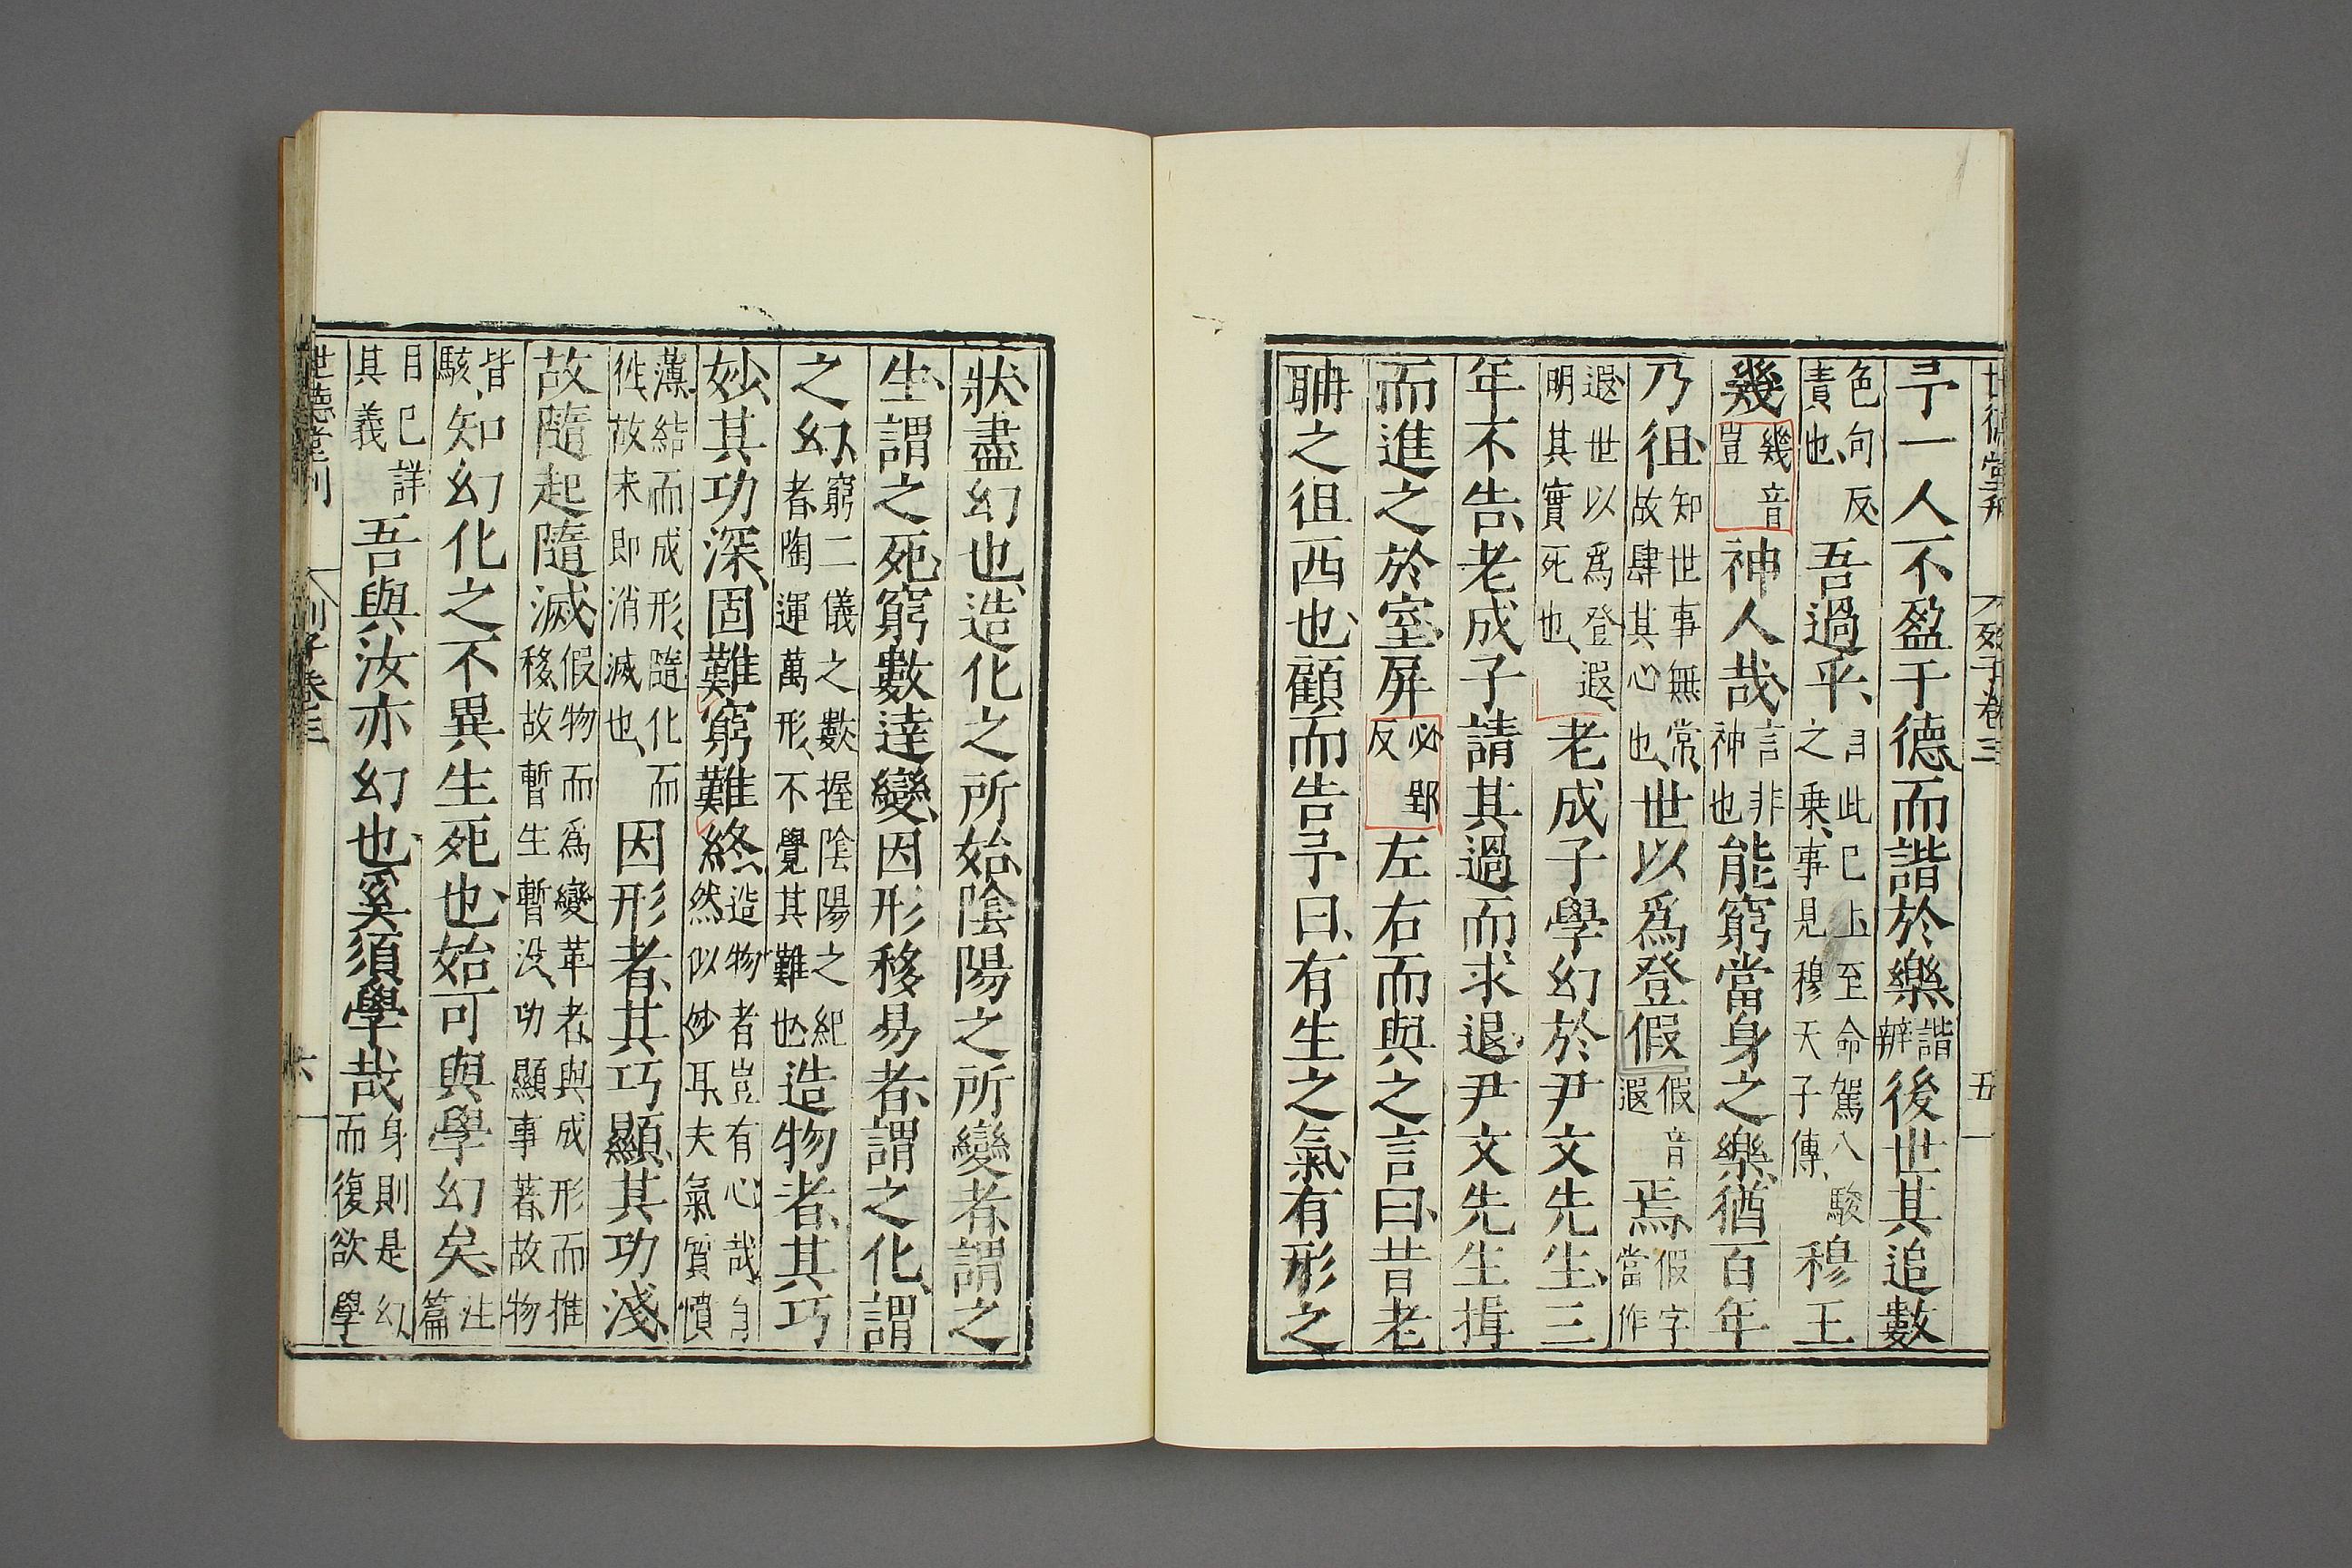 世德堂刊 列子卷三 五
予一人不盈于德而諧於樂諧辨後世其追數
色句反責也吾過乎自此已上至命駕八駿之乗事見穆天子傳穆王
幾幾音豈神人哉言非神也能窮當身之樂猶百年
乃徂知世事無常故肆其心也世以爲登假假音遐焉假字當作
遐世以爲登遐明其實死也老成子學幻於尹文先生三
年不告老成子請其過而求退尹文先生揖
而進之於室屏必郢反左右而與之言曰昔老
耼之徂西也顧而告予曰有生之氣有形之
狀盡幻也造化之所始陰陽之所變者謂之
生謂之死窮數達變因形移易者謂之化謂
之幻窮二儀之數握陰陽之紀者陶運萬形不覺其難也造物者其巧
妙其功深固難窮難終造物者豈有心哉自然似妙耳夫氣質憤
薄結而成形隨化而徃故未即消滅也因形者其巧顯其功淺
故隨起隨滅假物而爲變革者與成形而推移故暫生暫没功顯事著故物
皆駭知幻化之不異生死也始可與學幻矣注篇
目已詳其義吾與汝亦幻也奚須學哉身則是幻而復欲學
世德堂刊 列子卷三 六